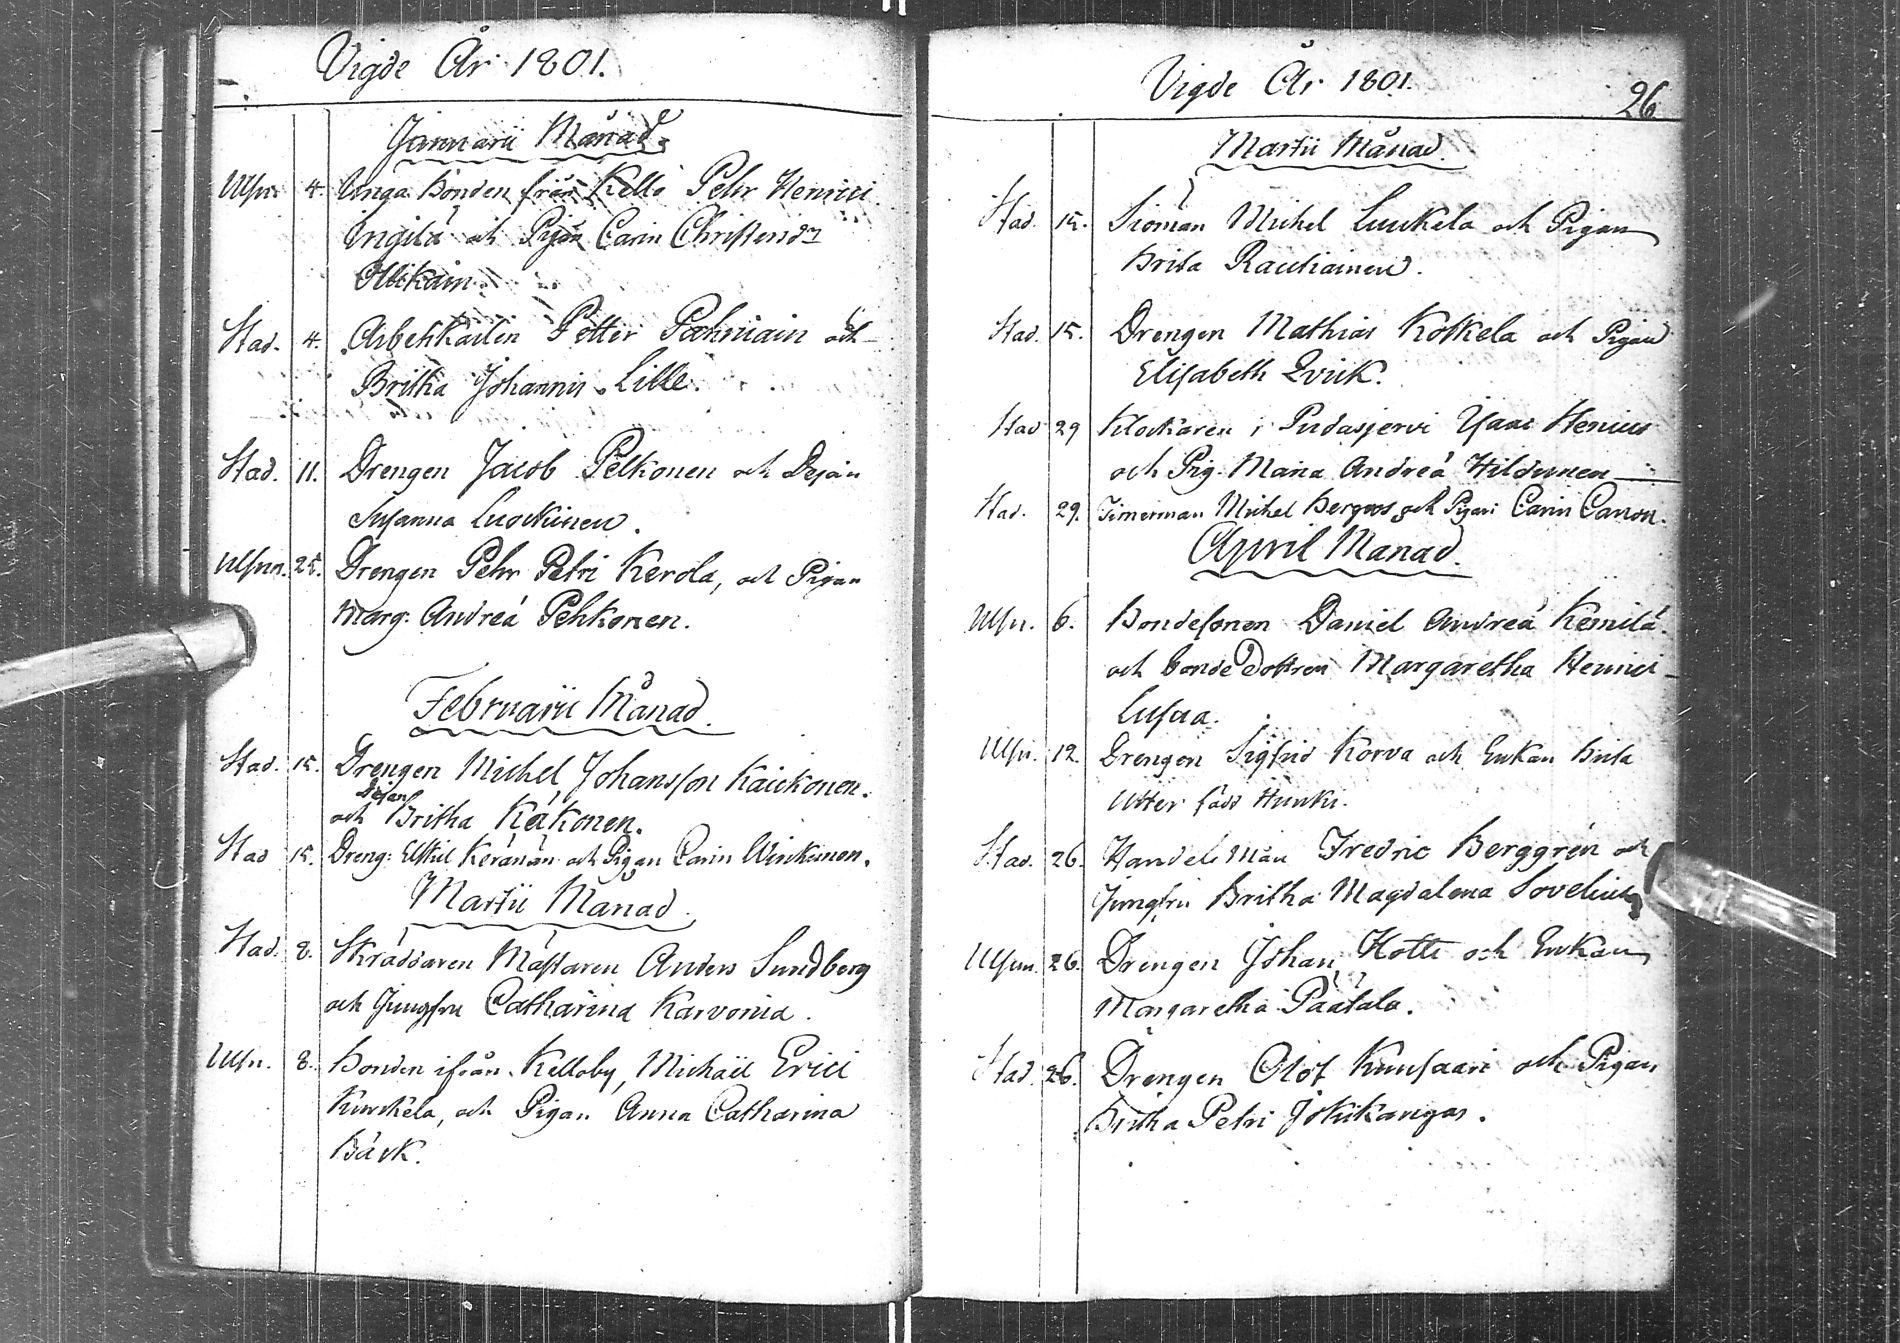 Vigde År 1801.
Januarii Månad.
Ulsn. 4. Unga Bonden från Kello Pehr Henrici
Ingilä och Pigan Carin Christersdr
Ollikain.
Stad. 4. Arbetskarlen Petter Pæhniain och
Britha Johannis Lille.
Stad. 11. Drengen Jacob Pelkonen och Dejan
Susanna Luockinen.
Ulsnn. 25. Drengen Pehr Petri Kerola, och Pigan
Marg: Andreæ Pehkonen.
Februarii Månad.
Stad. 15. Drengen Michel Johansson Kaickonen.
Dejan
och Britha Käkönen.
Stad 15. Dreng: Eskil Keränän och Pigan Carin
Martii Månad.
Stad. 8. Skräddaren Mästaren Anders Sundberg
och Jungfru Catharina Karvonia.
Ulsn. 8. Bonden ifrån Kelloby, Michaël Erici
Kurckela, och Pigan Anna Catharina
Bäck.
Vigde År 1801.
26
Martii Månad.
Stad. 15. Sjöman Michel Luukela och Pigan
Brita Rautiainen.
Stad. 15. Drengen Mathias Koskela och Pigan
Elisabeth Qvick.
Stad 29 Klockaren i Pudasjervi Isaac Henrici
och Pig. Maria Andreæ Hildunen
Stad. 29. Timerman Michel och Pigan Carin
April Månad.
Ulsn. 6. Bondesonen Daniel Andreæ Kemilä
och bonde Dottren Margaretha Henrici
Ulsn. 12. Drengen Sigfrid Korva och Enkan Brita
Utter född
Stad. 26. Handels Man Fredric Berggrén och
Jungfru Britha Magdalena Sovelius
Ulsnn. 26. Drengen Johan Hotti och Enkan
Margaretha Päätalo.
Stad. 26. Drengen Olof Kuusaari och Pigan
Britha Petri Jokikangas.